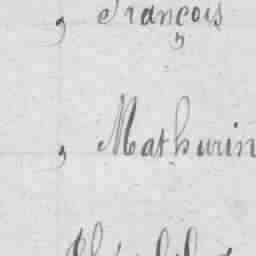 , François
, Mathurin